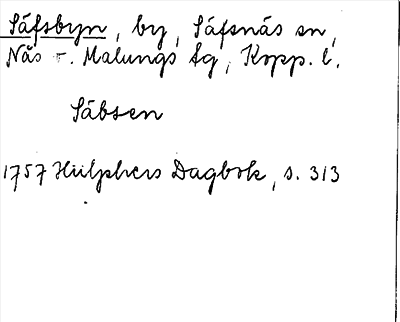 Säfsbyn, by, Säfsnäs sn,
Nås o. Malungs fg, Kopp. l.
Säbsen
1757 Hülphers Dagbok, s. 313